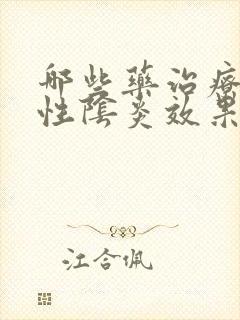 哪些藥治療
性陰炎效果
江合佩